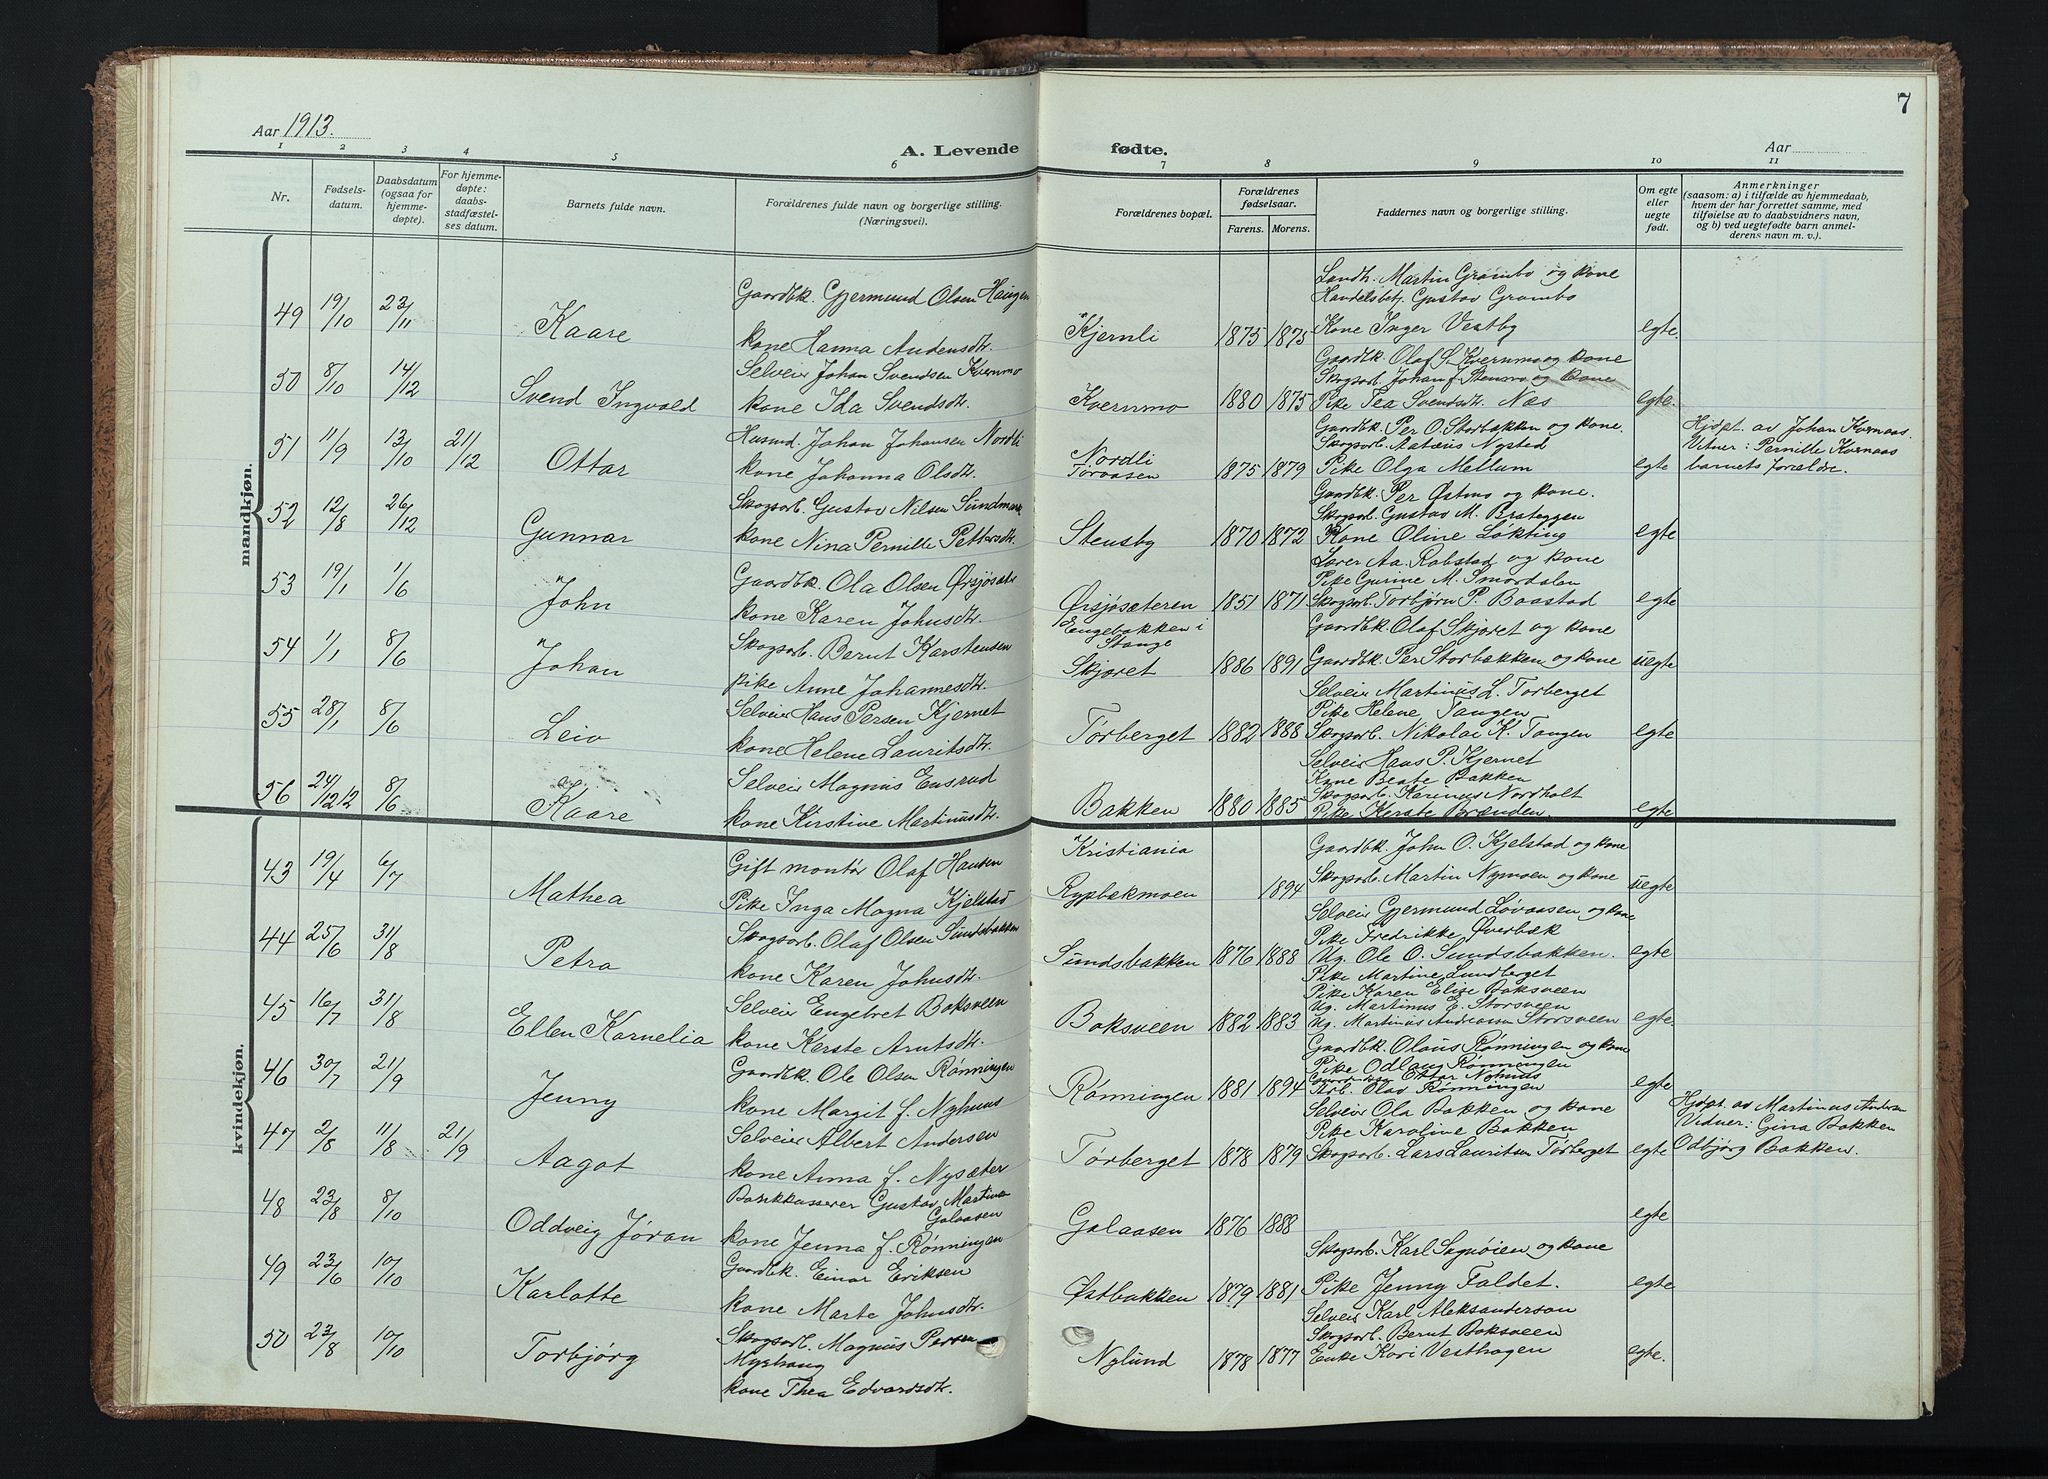 7
Aar 1913.
A. Levende fødte.
Aar
1 2 3 4 5 6 7 8 9 10 11
Nr.
Fødsels-
datum.
Daabsdatum
(ogsaa for
hjemme-
døpte).
For hjemme-
døpte:
daabs-
stadfæstel-
ses datum.
Barnets fulde navn.
Forældrenes fulde navn og borgerlige stilling.
(Næringsvei).
Forældrenes bopæl.
Forældrenes
fødselsaar.
Farens. Morens.
Faddernes navn og borgerlige stilling.
Om egte
eller
uegte
født.
Anmerkninger
(saasom: a) i tilfælde av hjemmedaab,
hvem der har forrettet samme, med
tilføielse av to daabsvidners navn,
og b) ved uegtefødte barn anmel-
derens navn m. v.).
mandkjøn.
49 19/10 23/11 Kaare
Gaardbk. Gjermund Olsen Haugen
kone Hanna Andensdtr.
Kjernli 1875 1875
Landh. Martin Grambo og kone
Handelsbetj. Gustav Grambo
Kone Inger Vestby
egte.
50 8/10 14/12 Svend Ingvald
Selveier Johan Svendsen Kvernmo
kone Ida Svendsdtr.
Kvernmo 1880 1875
Gaardbk. Olaf S. Kvernmo og kone
Skogsarb. Johan J. Stensmo og kone
Pike Tea Svendsdtr. Næs
egte.
51 11/9 13/10 21/12 Ottar
Husmd. Johan Johansen Nordli
kone Johanna Olsdtr.
Nordli
Toraasen 1875 1879
Gaardbk. Per O. Storbækken og kone.
Skogsarb. Matæus Nysted
Pike Olga Mellum
egte
Hjdpt. av Johan Kvernaas.
Vitner: Pernille Kvernaas
barnets forældre.
52 12/8 26/12 Gunnar
Skogsarb. Gustav Nilsen Sundmoen
kone Nina Pernille Pettersdtr.
Stensby 1870 1872
Gaardbk. Per Østmo og kone.
Skogsarb. Gustav M. Brateggen
Kone Oline Løkting
egte
53 19/1 1/6 John
Gaardbk. Ola Olsen Ørsjøsæter
kone Karen Johnsdtr.
Ørsjøsæteren 1851 1871
Lærer Aa. Robstad og kone
Pike Gurine M. Smordalen
Skogsarb. Torbjørn P. Baastad
egte
54 1/1 8/6 Johan
Skogsarb. Bernt Karstensen
pike Anne Johannesdtr.
Engebakken i
Stange
Skjæret 1886 1891
Gaardbk. Olaf Skjæret og kone
Gaardbk. Per Storbækken og kone
uegte
55 28/1 8/6 Leiv
Selveier Hans Persen Kjernet
kone Helene Lauritsdtr.
Tørberget 1882 1888
Selveier Martinus L. Tørberget
Pike Helene Tangen
Skogsarb. Nikolai K. Tangen
egte
56 24/12 12 8/6 Kaare
Selveier Magnus Ensrud
kone Kirstine Martinusdtr.
Bakken 1880 1885
Selveier Hans P. Kjernet
Kone Beate Bakken
Skogsarb. Karinus Nordholt
Pike Kerste Brænden
egte
kvindekjøn.
43 19/4 6/7 Mathea
Gift montør Olaf Hansen
Pike Inga Magna Kjelstad
Kristiania
Rypbækmoen 1894
Gaardbk. John O. Kjelstad og kone
Skogsarb. Martin Nymoen og kone
uegte
44 25/6 31/8 Petra
Skogsarb. Olaf Olsen Sundsbakken
kone Karen Johnsdtr.
Sundsbakken 1876 1888
Selveier Gjermund Løvaasen og kone
Pike Fredrikke Øverbæk
Ug. Ole O. Sundsbakken.
egte
45 16/7 31/8 Ellen Kornelia
Selveier Engebret Boksveen
kone Kerste Arntsdtr.
Boksveen 1882 1883
Pike Martine Lundberget
Pike Karen Elise Boksveen
Ug. Martinus E. Storsveen
Ug. Martinus Andreassen Storsveen
egte.
46 30/7 21/9 Jenny
Gaardbk. Ole Olsen Rønningen
kone Margit f. Nyhuus
Rønningen 1881 1894
Gaardbk. Olaus Rønningen og kone
Pike Odlaug Rønningen
Ottar Nyhuus
Arb. Olav Rønningen
egte
47 2/8 11/8 21/9 Aagot
Selveier Albert Andersen
kone Anna f. Nysæter
Tørberget 1878 1879
Selveier Ola Bakken og kone
Pike Karoline Bakken
Skogsarb. Lars Lauritsen Tørberget
egte
Hjdpt. av Martinus Andersen
Vidner: Gina Bakken
Odbjørg Bakken.
48 23/8 8/10 Oddveig Jøran
Bankkasserer Gustav Martinsen
Galaasen
kone Jenna f. Rønningen
Galaasen 1876 1888
egte
49 23/6 10/10 Karlotte
Gaardbk. Einar Eriksen
kone Marte Johnsdtr.
Østbakken 1879 1881
Skogsarb. Karl Sagmoien og kone
Pike Jenny Faldet.
egte
50 23/8 10/10 Torbjørg
Skogsarb. Magnus Persen
Myrhaug
kone Thea Edvardsdtr.
Nylund 1878 1877
Selveier Karl Aleksanderson
Skogsarb. Bernt Boksveen
Enke Kari Vesthagen
egte.